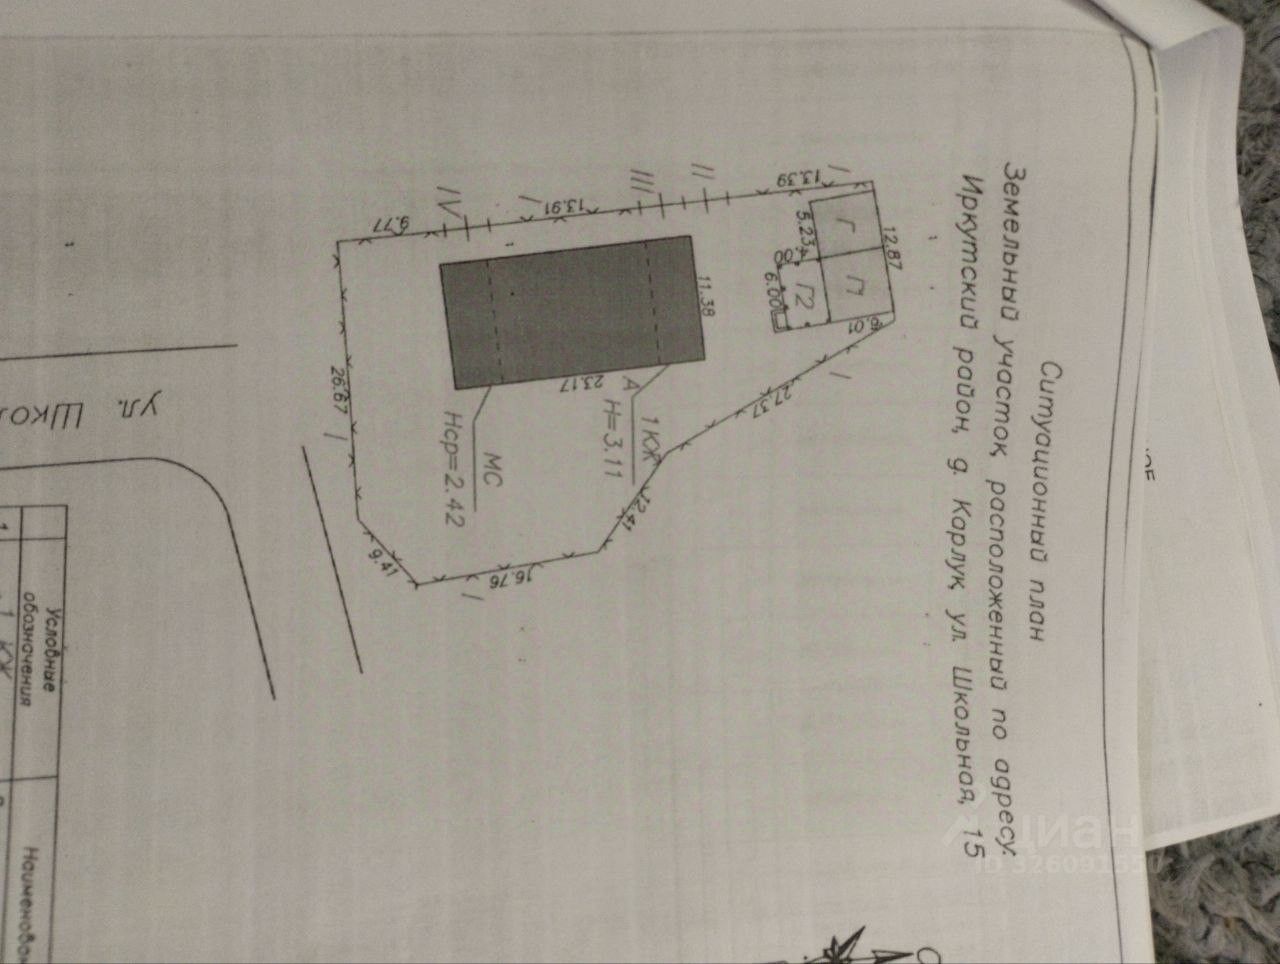 Ситуационный план
Земельный участок, расположенный по адресу:
Иркутский район, д. Карлук, ул. Школьная, 15
12.87
Г
Г1
Г2
5.23
6.00
6.01
13.39
I
II
III
13.91
I
IV
9.77
11.38
23.17
А
1КЖ
Н=3.11
МС
Нср=2.42
27.37
I
12.41
16.76
I
9.41
26.67
I
ул. Школ
Условные
обозначения
Наименован
1
1 КЖ
С
циан